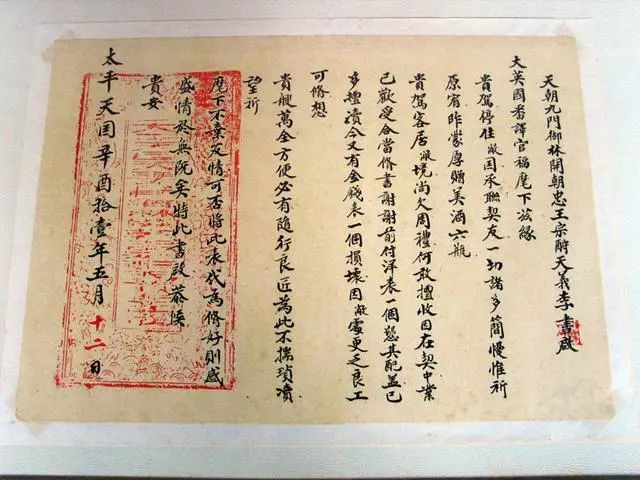 天朝九門御林開朝忠王宗酧天義李書啟
大英國番譯官福麾下茲緣
貴駕停住敝国承聯契友一切諸多簡慢惟祈
原宥昨蒙厚贈美酒六瓶
貴駕客居敝境尚欠周禮何敢擅收因在契中業
已歡受合當脩書謝謝前付洋表一個懇其配蓋已
多瀆今又有金錢表一個損壞因敝處更乏良工
可脩想
貴艘萬全方便必有隨行良匠為此不揣瑣凟
望祈
麾下不棄友情可否將此表代為脩好則感
盛情於無既矣特此書啟恭候
貴安
太平天囯辛酉拾壹年五月十二日